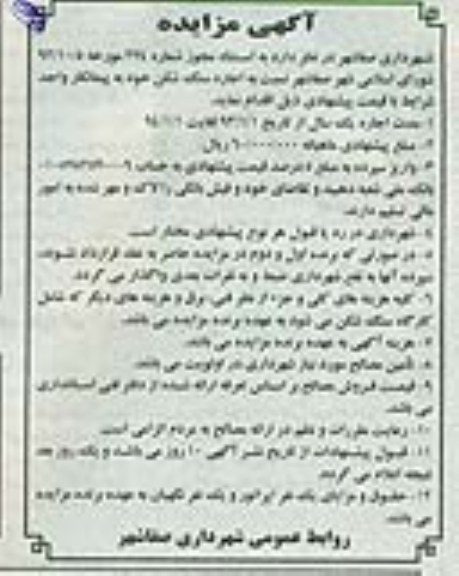 آگهی مزایده
شهرداری صفاشهر در نظر دارد به استناد مجوز شماره ۲۲۴ مورخه
شورای اسلامی شهر صفاشهر نسبت به اجاره سنگ شکن خود به پیمانکار واجد
شرایط با قیمت پیشنهادی ذیل اقدام نماید.
۱- مدت اجاره یک سال از تاریخ ۹۳/۱/۱ لغایت ۹۴/۱/۱
۲- مبلغ پیشنهادی ماهیانه ریال
۳- واریز سپرده به مبلغ ۵ درصد قیمت پیشنهادی به حساب
بانک ملی شعبه دهبید و تقاضای خود و فیش بانکی را لاک و مهر شده به امور
مالی تسلیم دارند.
۴- شهرداری در رد یا قبول هر نوع پیشنهادی مختار است.
۵- در صورتی که برنده اول و دوم در مزایده حاضر به عقد قرارداد نشوند،
سپرده آنها به نفع شهرداری ضبط و به نفرات بعدی واگذار می گردد.
۶- کلیه هزینه های کلی و جزء از نظر فنی، برق و هزینه های دیگر که شامل
کارگاه سنگ شکن می شود به عهده برنده مزایده می باشد.
۷- هزینه آگهی به عهده برنده مزایده می باشد.
۸- تأمین مصالح مورد نیاز شهرداری در اولویت می باشد.
۹- قیمت فروش مصالح بر اساس تعرفه ارائه شده از دفتر فنی استانداری
می باشد.
۱۰- رعایت مقررات و نظم در ارائه مصالح به مردم الزامی است.
۱۱- قبول پیشنهادات از تاریخ نشر آگهی ۱۰ روز می باشد و یک روز بعد
نتیجه اعلام می گردد.
۱۲- حقوق و مزایای یک نفر اپراتور و یک نفر نگهبان به عهده برنده مزایده
می باشد.
روابط عمومی شهرداری صفاشهر